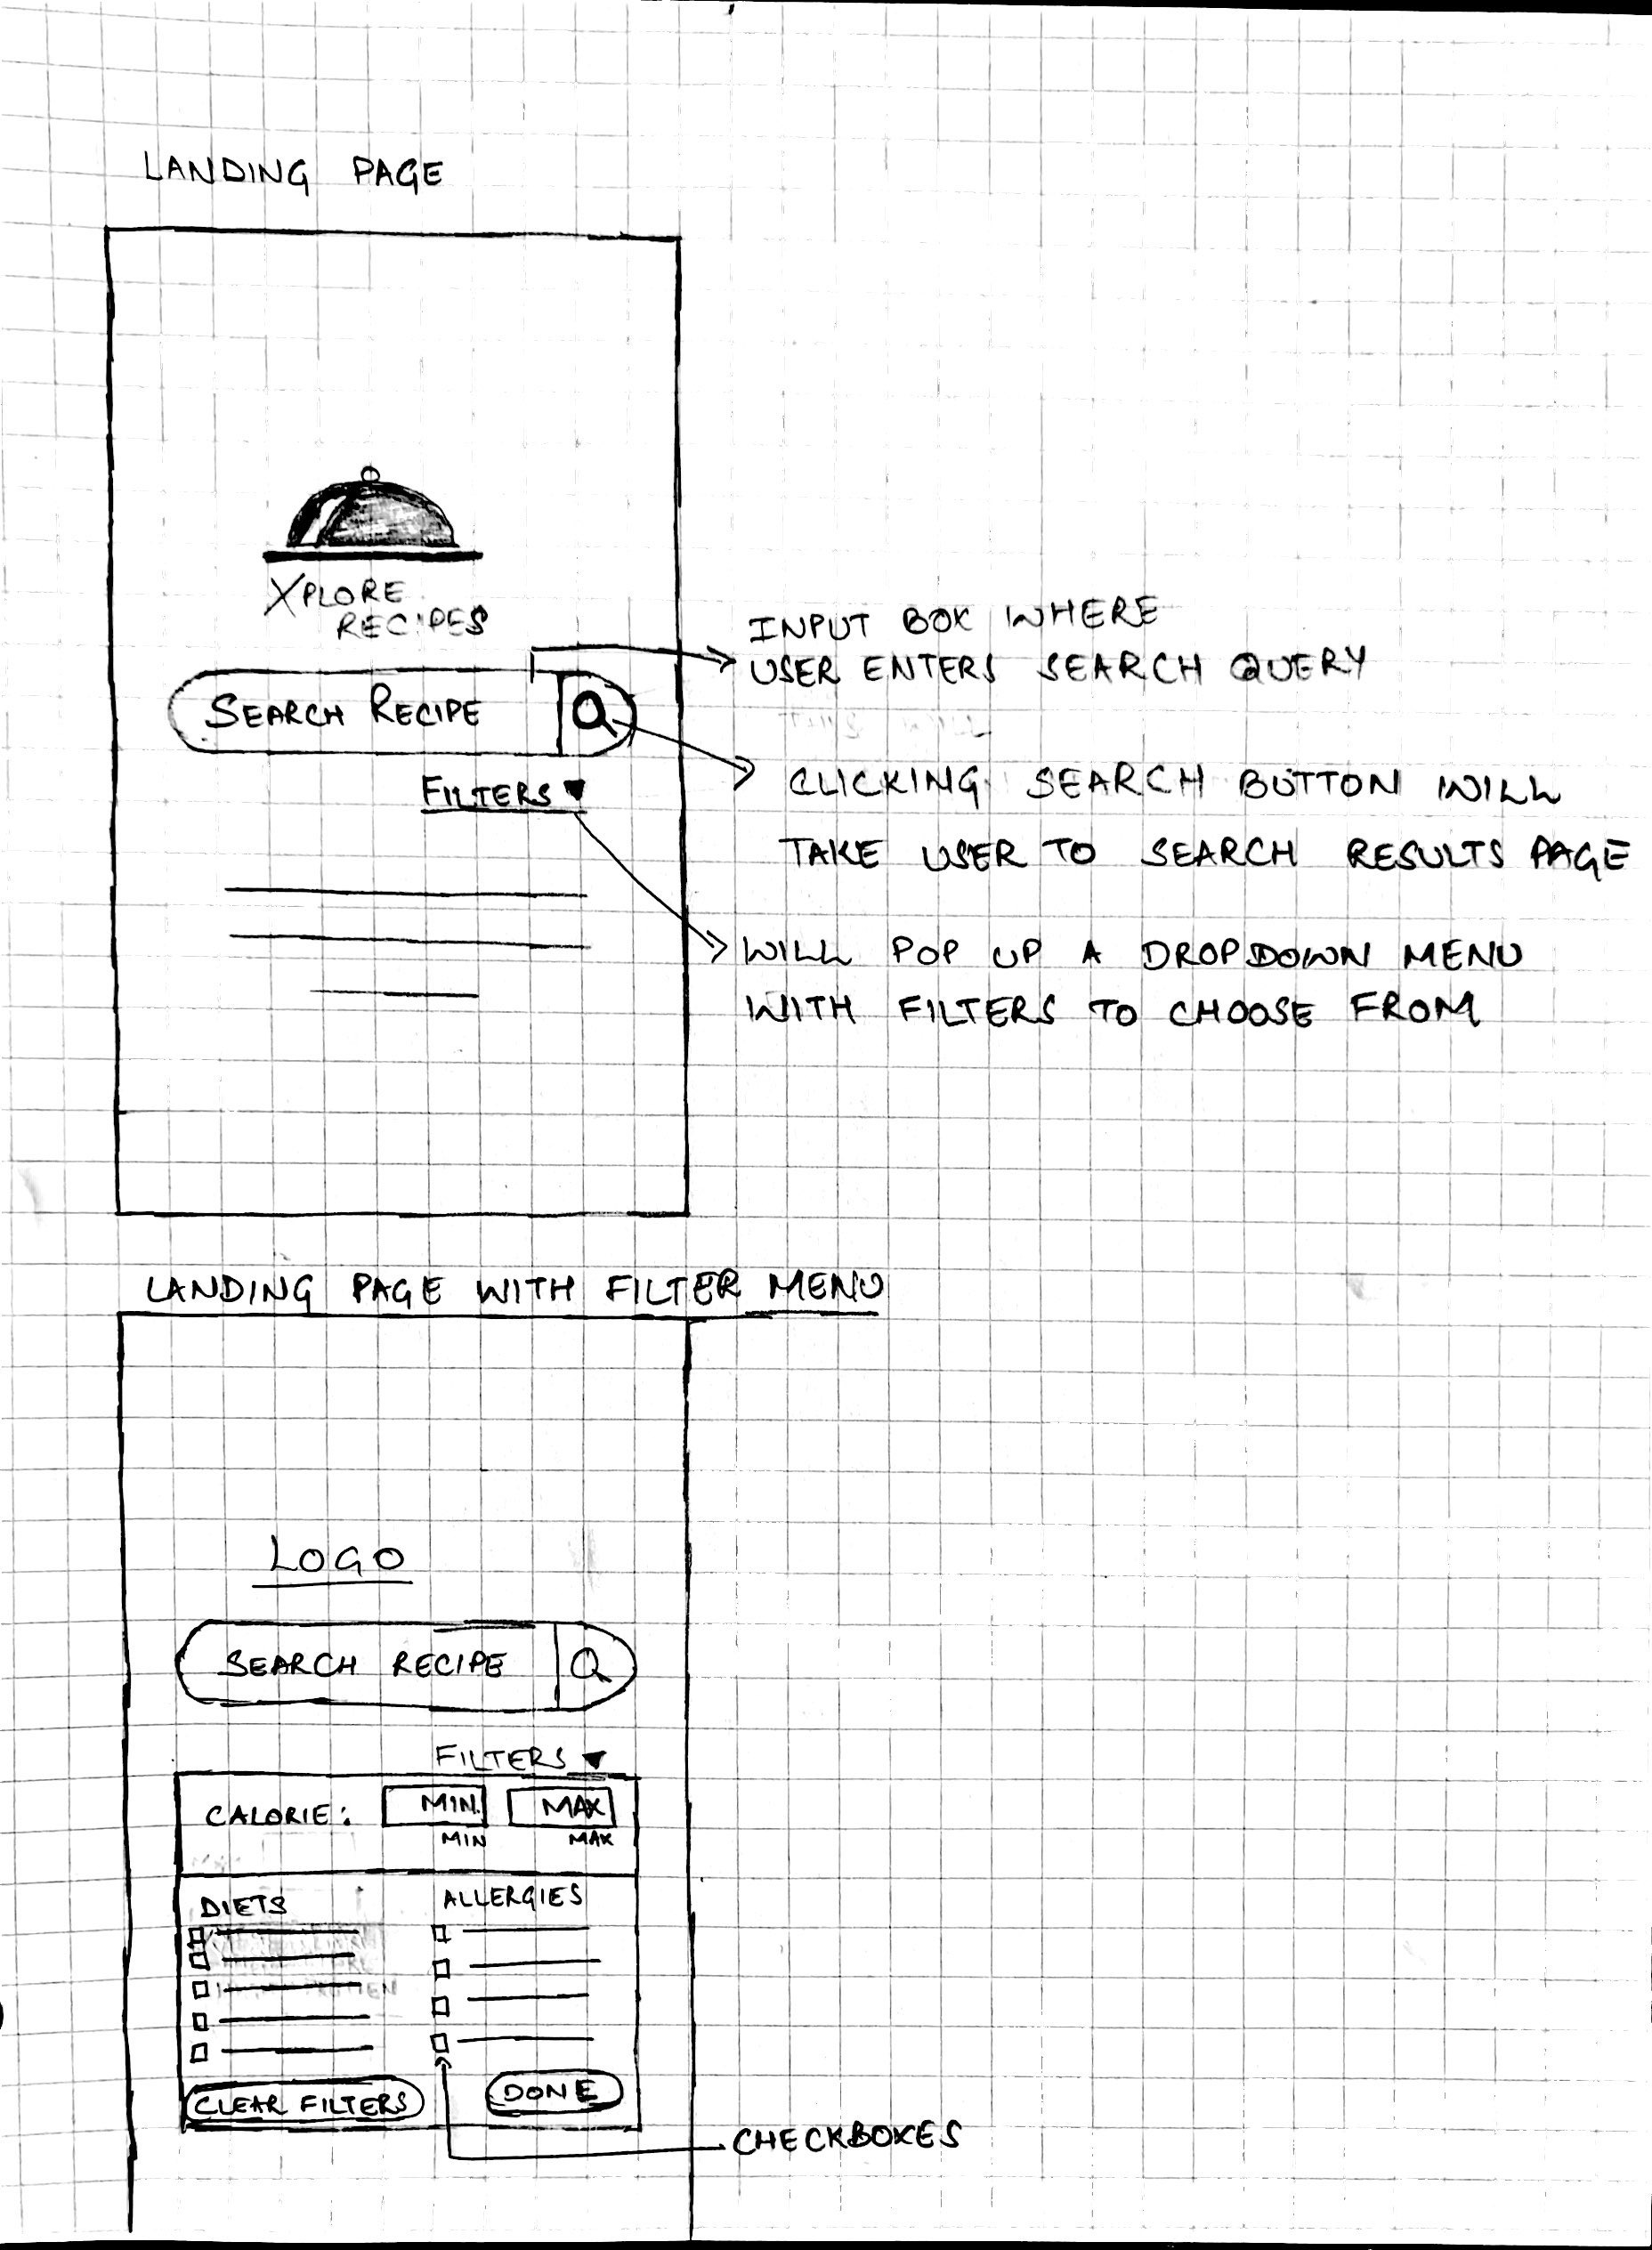 LANDING PAGE
XPLORE
RECIPES
SEARCH RECIPE
FILTERS
INPUT BOX WHERE
USER ENTERS SEARCH QUERY
CLICKING SEARCH BUTTON WILL
TAKE USER TO SEARCH RESULTS PAGE
WILL POP UP A DROPDOWN MENU
WITH FILTERS TO CHOOSE FROM
LANDING PAGE WITH FILTER MENU
LOGO
SEARCH RECIPE
FILTERS
CALORIE: MIN. MAX
MIN MAX
DIETS ALLERGIES
CLEAR FILTERS DONE
CHECKBOXES